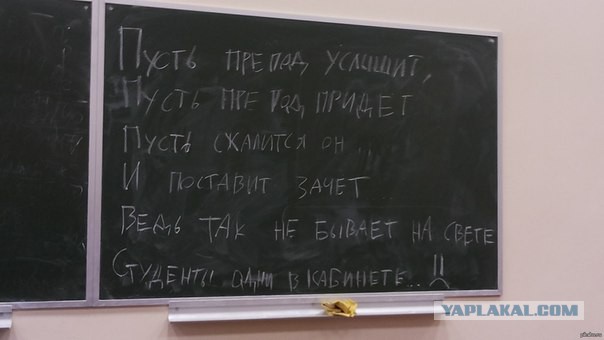 Пусть препод услышит,
Пусть препод придет
Пусть сжалится он...
И поставит зачет
Ведь так не бывает на свете
Студенты одни в кабинете..!!
YAPLAKAL.COM